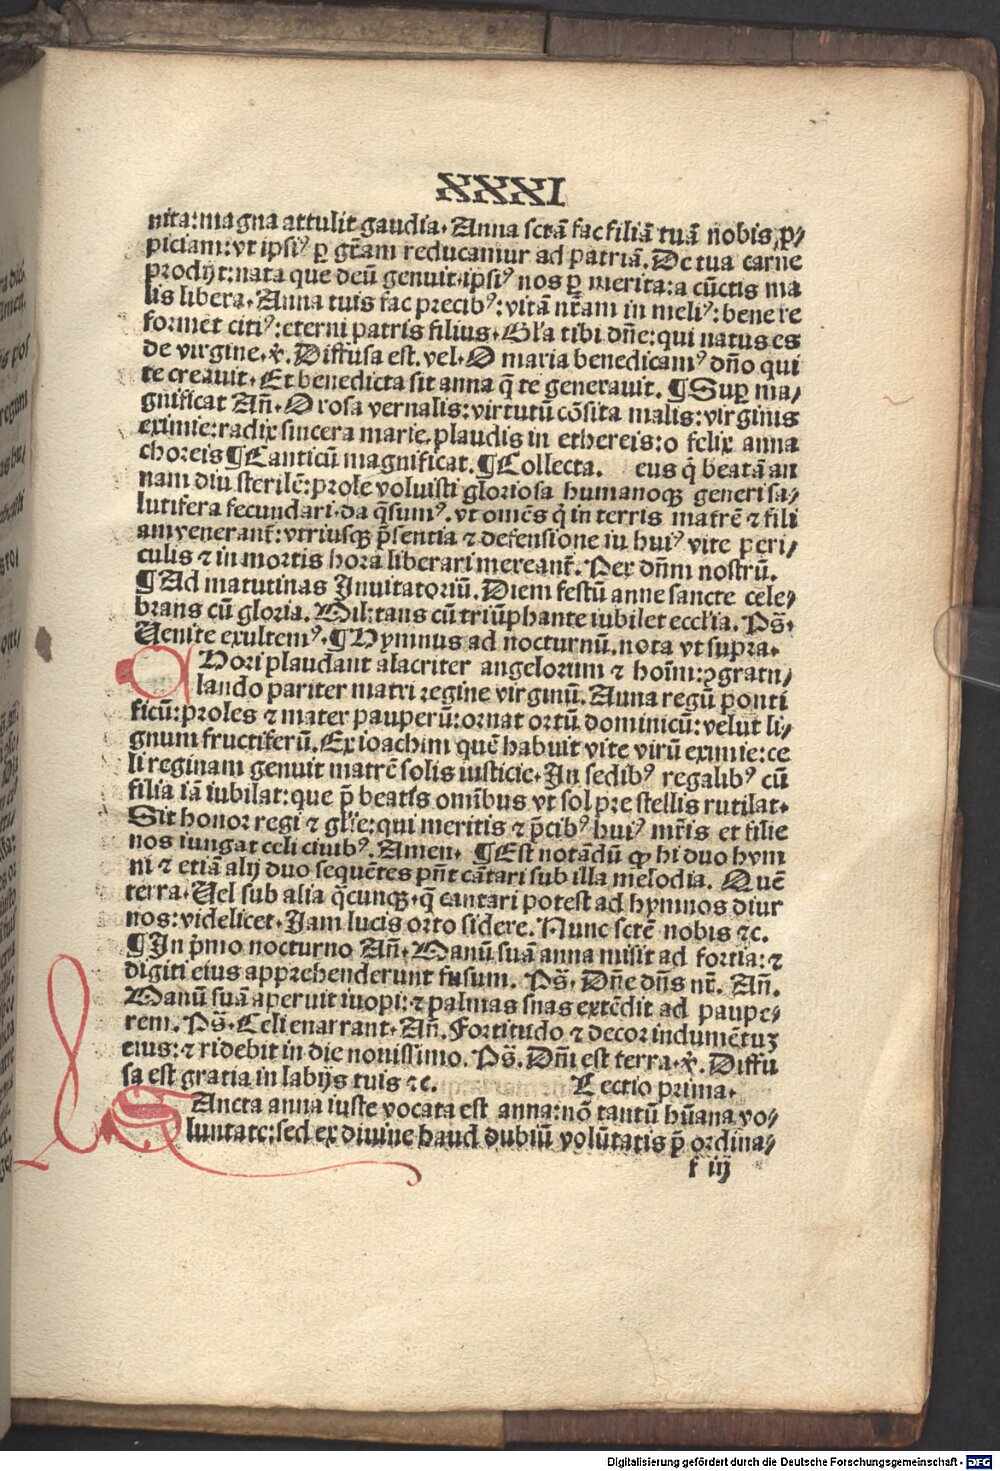 XXXI
nita:magna attulit gaudia. Anna sctã fac filiã tuã nobis ꝓ⸗
piciam:vt ipsiꝰ ꝑ gr̃am reducamur ad patriã. De tua carne
prodijt:nata que deũ genuit.ipsiꝰ nos ꝑ merita:a cũctis ma
lis libera. Anna tuis fac precibꝰ:vitã nr̃am in meliꝰ:bene re
formet citiꝰ:eterni patris filius. Gl'a tibi dñe:qui natus es
de virgine. ℣. Diffusa est. vel. O maria benedicamꝰ dño qui
te creauit. Et benedicta sit anna q̃ te generauit. ¶Suꝑ ma⸗
gnificat Añ. O rosa vernalis:virtutũ cõsita malis:virginis
eximie:radix sincera marie.plaudis in ethereis:o felix anna
choreis ¶Canticũ magnificat. ¶Collecta. eus q̃ beatã an
nam diu sterilẽ:prole voluisti gloriosa humanoqꝫ generi sa⸗
lutifera fecundari.da q̃sumꝰ.vt omẽs q̃ in terris matrẽ ⁊ fili
am venerant̃:vtriusqꝫ p̃sentia ⁊ defensione iu huiꝰ vite peri⸗
culis ⁊ in mortis hora liberari mereant̃. Per dñm nostrũ.
¶Ad matutinas Inuitatoriũ. Diem festũ anne sancte cele⸗
brans cũ gloria. Militans cũ triũphante iubilet eccl'ia. Ps̃.
Uenite exultemꝰ. ¶Hymnus ad nocturnũ. nota vt supra.
Hori plaudant alacriter angelorum ⁊ hoĩm:ꝯgratu⸗
lando pariter matri regine virginũ. Anna regũ ponti
ficũ:proles ⁊ mater pauperũ:ornat ortũ dominicũ:velut li⸗
gnum fructiferũ. Ex ioachim quẽ habuit vite virũ eximie:ce
li reginam genuit matrẽ solis iusticie. In sedibꝰ regalibꝰ cũ
filia iã iubilat:que p̃ beatis omĩbus vt sol pre stellis rutilat.
Sit honor regi ⁊ gl'ie:qui meritis ⁊ p̃cibꝰ huiꝰ mr̃is et filie
nos iungat celi ciuibꝰ. Amen. ¶Est notãdũ ꝙ hi duo hym
ni ⁊ etiã alij duo sequẽtes pñt cãtari sub illa melodia. Quẽ
terra. Uel sub alia q̃cunqꝫ.q̃ cantari potest ad hymnos diur
nos:videlicet. Iam lucis orto sidere. Nunc sctẽ nobis ⁊c.
¶In p̃mo nocturno Añ. Manũ suã anna misit ad fortia:⁊
digiti eius apprehenderunt fusum. Ps̃. Dñe dñs nr̃. Añ.
Manũ suã aperuit inopi:⁊ palmas suas extẽdit ad paupe⸗
rem. Ps̃. Celi enarrant. Añ. Fortitudo ⁊ decor indumẽtuꝫ
eius:⁊ ridebit in die nouissimo. Ps̃. Dñi est terra. ℣. Diffu
sa est gratia in labijs tuis ⁊c. Lectio prima.
SAncta anna iuste vocata est anna:nõ tantũ hũana vo⸗
luntate:sed ex diuine haud dubiũ volũtatis p̃ ordina⸗
f iij
Digitalisierung gefördert durch die Deutsche Forschungsgemeinschaft - DFG